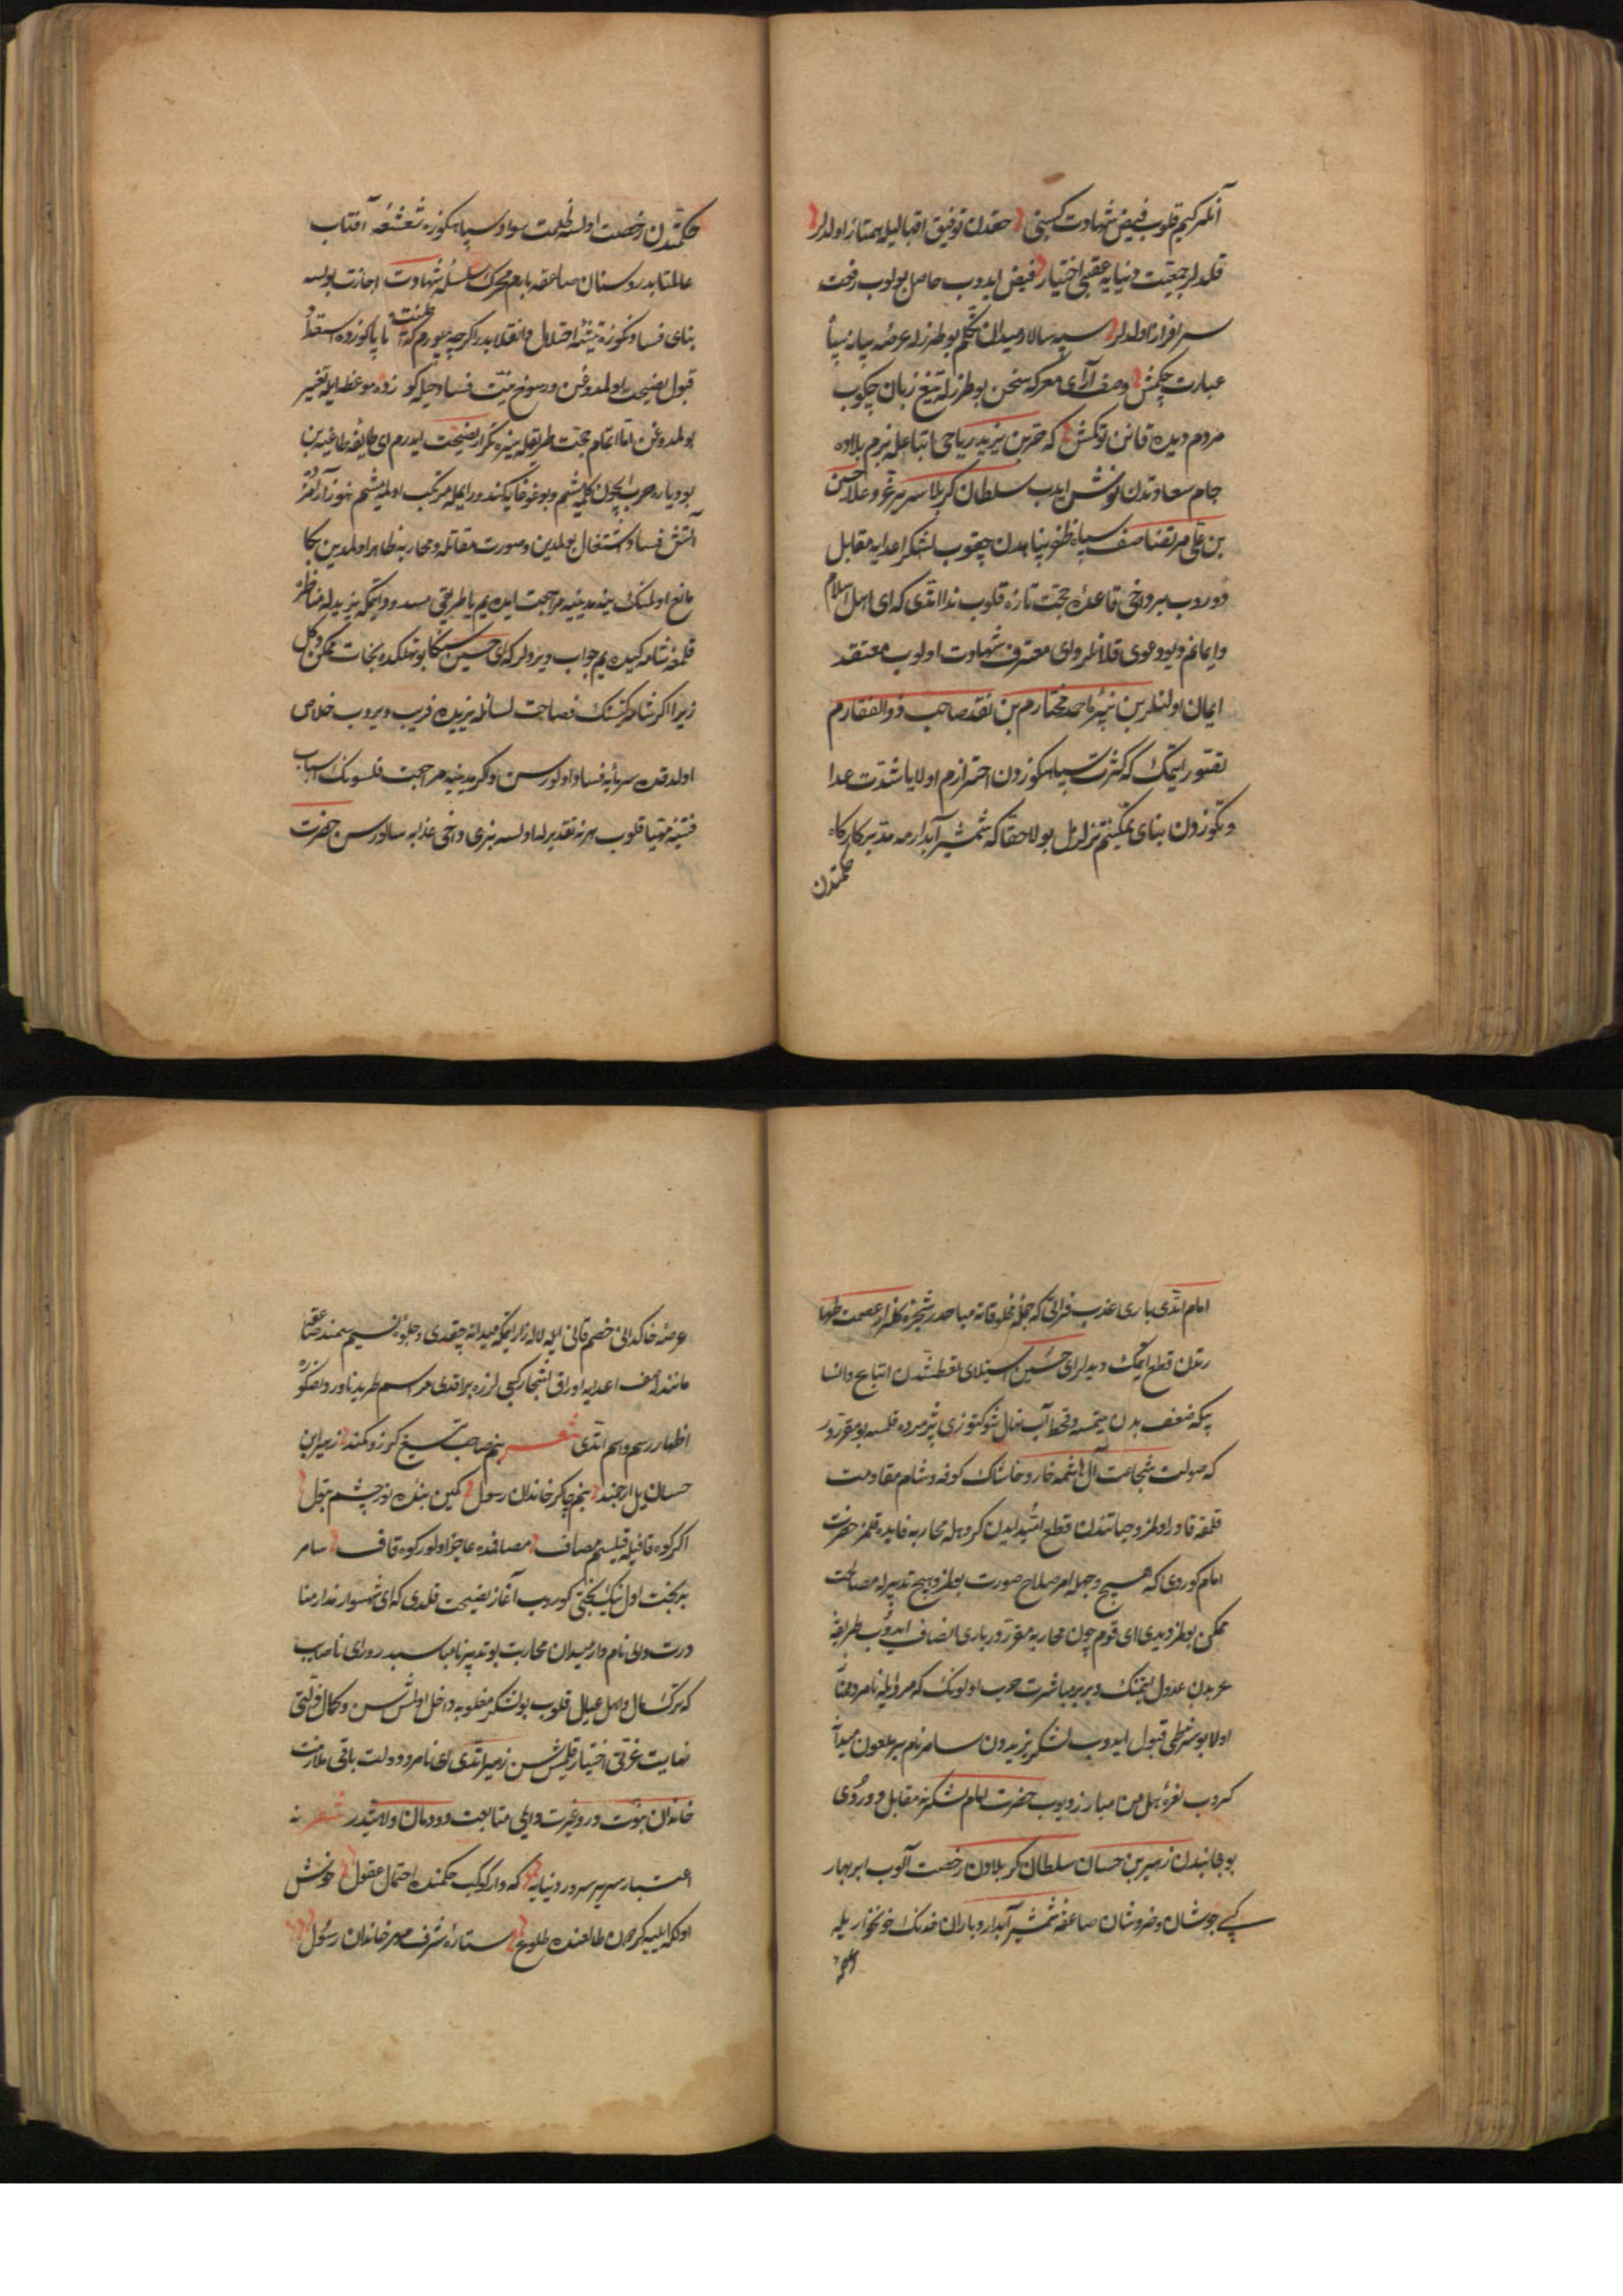 آنلر كیم قلوب فیض شهادت كسبنی حقدن توفیق اقبالیله ممتاز اولدلر
قلدلر جمعیت دنیایه عقبی اختیار فیض ایدوب حاصل بولوب رفعت
سرافراز اولدلر سپه سالار میدان تكلم بو طرزله عرصه بیانه سپاه
عبارت چكمش وصف آرای معركه سخن بو طرزله تیغ زبان چكوب
مردم دیده قانن توكمش كه حر بن یزید ریاحی اتباعله بزم بلاده
جام سعادتدن نوش ایدب سلطان كربلا سریر عز و علا حسین
بن علی مرتضا صف سپاه ظفر پناهدن چقوب لشكر اعدایه مقابل
دوروب بر دخی قاعده حجت تازه قلوب ندا اتدی كه ای اهل اسلام
وایمانم دیو دعوی قلانلر وای معترف شهادت اولوب معتقد
ایمان اولنلر بن نبیره احمد مختارم بن نقد صاحب ذوالفقارم
تصور ایتمك كه كثرت سپاهكوزدن احترازم اولا یا شدت عدا
وتكوزدن بنای تمكینم تزلزل بولا حقا كه شمشیر آبدارمه مدبر كاركاه
حكمتدن
حكمتدن رخصت اولسه ظلمت سواد سپاهكوزه شعشعه آفتاب
عالمتابدر وسنان صاعقه بارم محرك سلسله شهادت اجازت بولسه
بنای فسادكوزه تیشه اختلال وانقلابدر اكرچه بیورم كه طینت ناپاكوزده استعداد
قبول نصیحت اولمدوغن ورسوخ نیت فساد جبلّكوزده موعظه ایله تغییر
بولمدوغن اما اتمام حجت طریقله ینه تكرار نصیحت ایدرم ای طایفه طاغیه بن
بو دیاره حرب ایچون كلمیشم وبو غوغایه كندو رایمله مرتكب اولمیشم هنوز آرامز
آتش فساد اشتعال بولمدین وصورت مقاتله ومحاربه ظاهر اولمدین بكا
مانع اولمنك ینه مدینیه مراجعت ایده یم یا طریقی مسدود ایتمكه یزیدله مناظره
قلمغه شامه كیده یم جواب ویردلر كه ای حسین سكا بو تهلكه ده نجات ممكن دكل
زیرا اكر شامه كیتسنك فصاحت لسانله یزیده فریب ویروب خلاص
اولدقده سرمایه فساد اولورسن واكر مدینیه مراجعت قلسونك اسباب
فتنه مهیا قلوب هر نه تقدیرله اولسه بنی دخی عذابه سالورسن حضرت
امام اتدی باری عذب فراتی كه جمله مخلوقاته مباحدر شجره كلزار عصمت وطها
رتدن قطع ایتمك دیدلر ای حسین استیلای لعطشدن اتباع وانسا
بیكه ضعف بدن یتمسه وقحط آب نهال شوكتوزی پژمرده قلمسه بو مقرردور
كه صولت شجاعت آل هاشمه خار وخاشاك كوفه وشام مقاومت
قلمغه قادر اولمز وحیاتندن قطع امید ایدن كروهله محاربه فایده قلمز حضرت
امام كوردی كه هیچ وجهله امر صلاح صورت بولمز وهیچ تدبیرله مصالحت
ممكن بولمز دیدی ای قوم چون محاربه مقرردور باری انصاف ایدوب طریقه
عربدن عدول ایتمنك وبربر مباشرت حرب اولونك كه مرد ایله نامرد ممتاز
اولا بو شرطی قبول ایدوب لشكر یزیددن سامر نام بر ملعون میدانه
كیروب نعره هل من مبارز دیوب حضرت امام لشكرنه مقابل دوردی
بو جانبدن زهیر بن حسان سلطان كربلادن رخصت آلوب ابر بهار
كبی جوشان وخروشان صاعقه شمشیر آبدار وباران خدنك خونخواریله
عرصه خاكدانی خصم قانی ایله لاله زار ایتمكه میدانه چقدی وجلوه نسیم سمند صاعقه
مانند صف اعدایه اوراق اشجار كبی لرزه براقدی مراسم طرید ناورد وتكوزه
اظهار رسم واسم اتدی شعر بنم صاحب تیغ كرز وكمند زهیر ابن
حسان یل ارجمند بنم چاكر خاندان رسول كمین بنده نور چشم بتول
اكر كوه قافیله قیلسم مصاف مصافده عاجز اولور كوه قاف سامر
بدبخت اول نیك بختی كوروب آغاز نصیحت قلدی كه ای شهسوار نامدار منا
درت ولی نام دار میدان محاربت بو تدبیر نامناسبدر ورای ناصاب
كه ترك مال واهل عیال قلوب بو لشكر مغلوبه داخل اولمش سن وكمال ذلتی
نهایت عزتی اختیار قلمش سن زهیر اتدی ای نامرد دولت باقی ملازمت
خاندان نبوت در وعزت دایمی متابعت دودمان ولایتدر شعر نه
اعتبار سریر سرور دنیایه كه وار كوكب حكمنده احتمال عقول خوش
اولكه ایلیه كردون طالعنده طلوع ستاره شرف مهر خاندان رسول